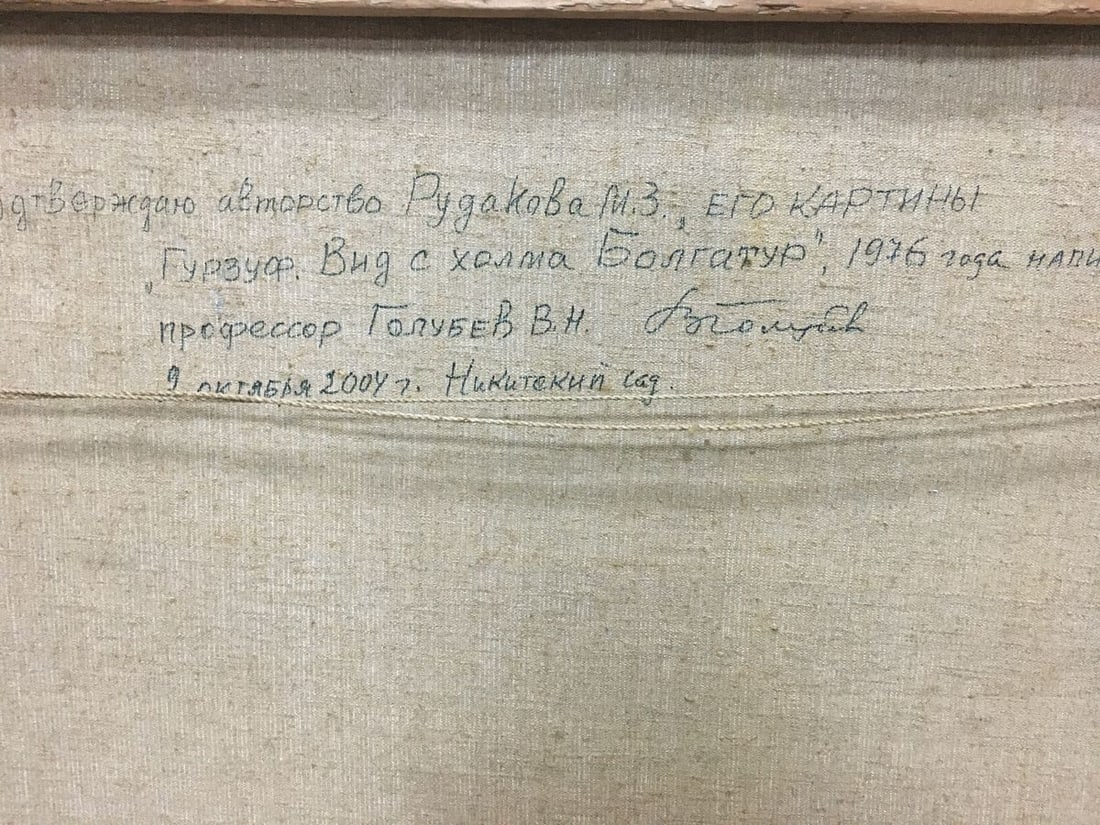 одтверждаю авторство Рудакова М.З., ЕГО КАРТИНЫ
„Гурзуф. Вид с холма Болгатур", 1976 года напи
профессор Голубев В.Н. ВГолубев
9 октября 2004 г. Никитский сад.